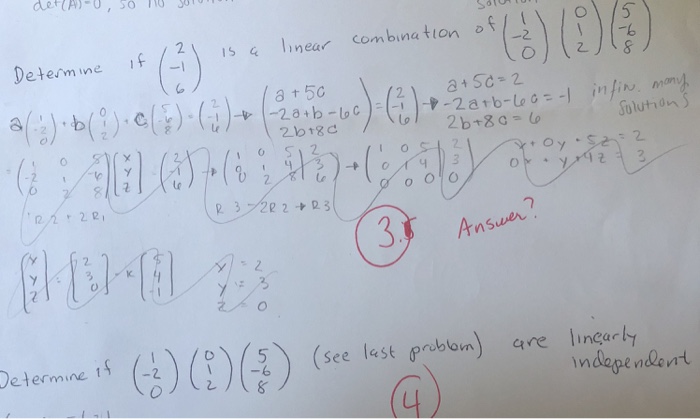 det(A)=0, so no
Determine if (2 -1 6) is a linear combination of (1 -2 0) (0 1 2) (5 -6 8)
a(1 -2 0) + b(0 1 2) + c(5 -6 8) = (2 -1 6) → (a+5c -2a+b-6c 2b+8c) = (2 -1 6) → a+5c=2 -2a+b-6c=-1 2b+8c=6 infin. many solutions
= (1 0 5 -2 1 -6 0 2 8) [x y z] = (2 -1 6) → (1 0 5 | 2 0 1 4 | 3 0 2 8 | 6) → (1 0 5 | 2 0 1 4 | 3 0 0 0 | 0) x+0y+5z=2 0x+y+4z=3
R2+2R1 R3-2R2→R3
3.5 Answer?
[x y z] = [2 3 0] - k [5 4 -1] x=2 y=3 z=0
Determine if (1 -2 0) (0 1 2) (5 -6 8) (see last problem) are linearly independent
4